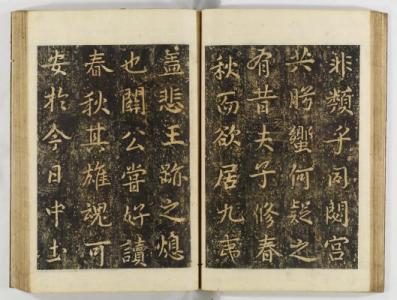 非類子同閟宮
共肸蠁何疑之
有昔夫子修春
秋而欲居九夷
盖悲王跡之熄
也關公嘗好讀
春秋其雄魂可
安扵今日中土